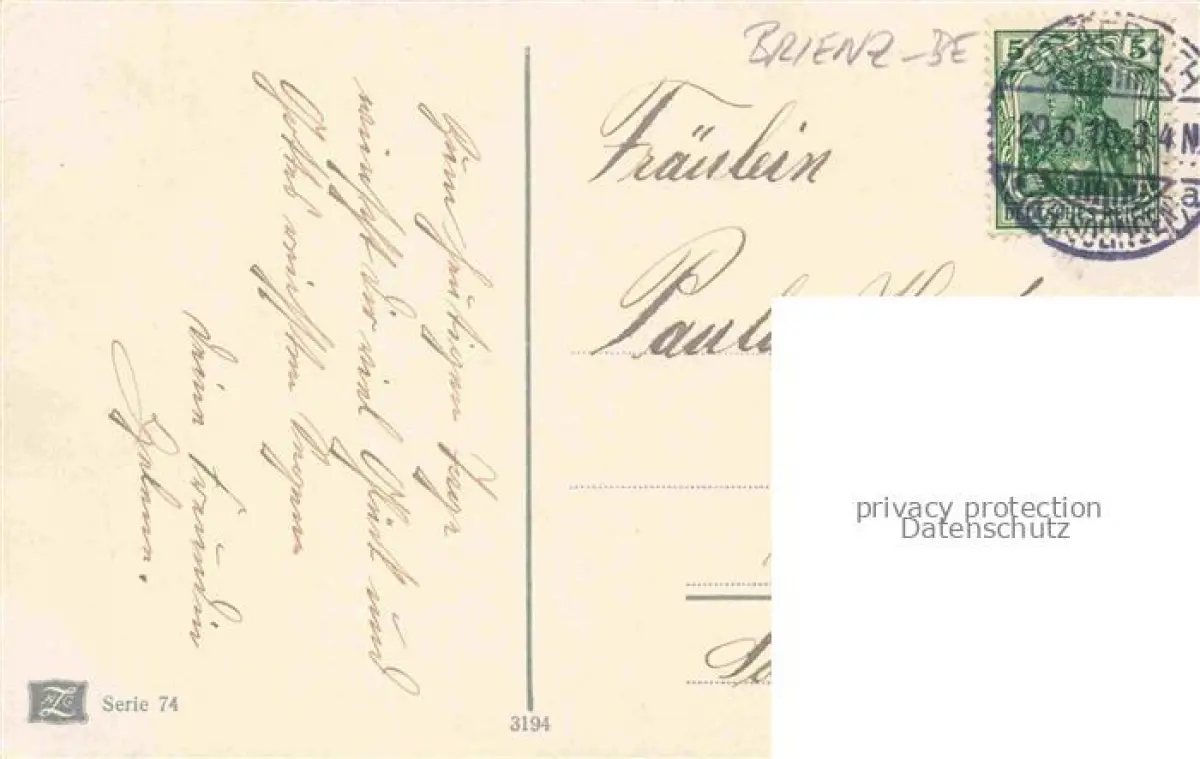 BRIENZ-BE
5 5
29.6.16. 3-4 N.
a
DEUTSCHES REICH
Fräulein
Zum heutigen Tage
wünscht dir viel Glück und
Gottes reichsten Segen
deine Freundin
Serie 74
3194
privacy protection
Datenschutz